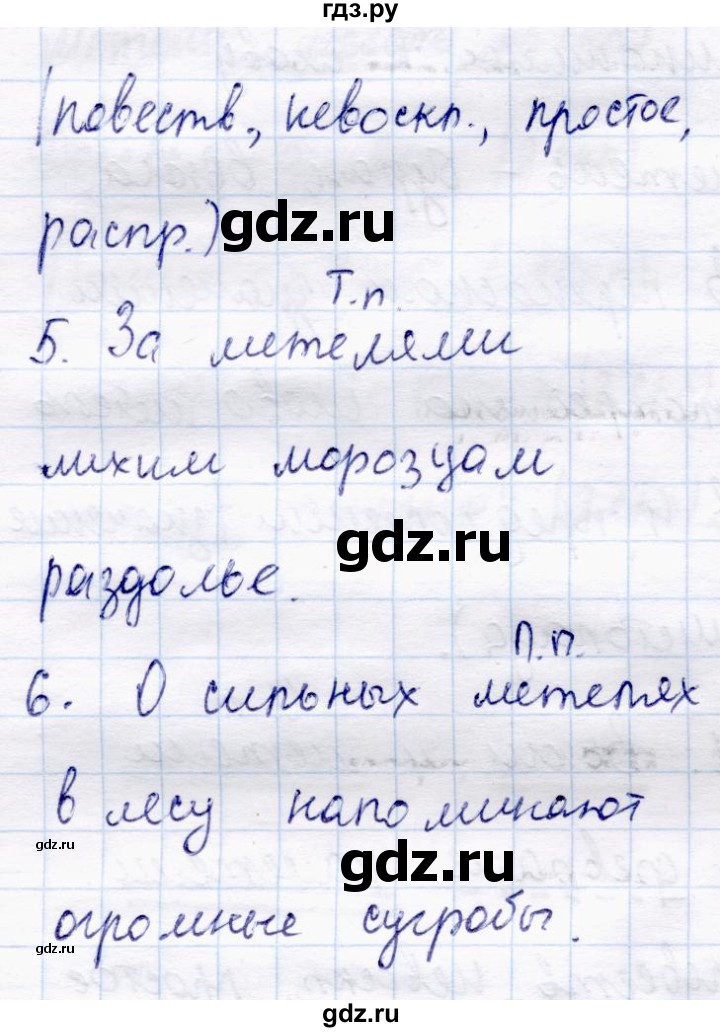 гдз.ру
(повеств., невоскл., простое,
распр.)
gdz.ru
Т.п.
5. За метелями
лихим морозцам
gdz.ru
раздолье.
П.п.
6. О сильных метелях
в лесу напоминают
gdz.ru
gdz.ru
огромные сугробы.
gdz.ru
gdz.ru